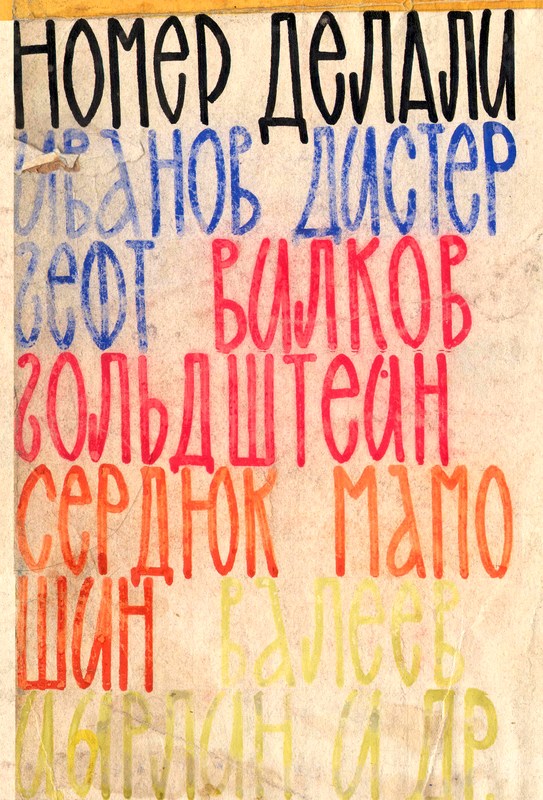 номер делали
иванов дистер
гефт вилков
гольдштейн
сердюк мамо
шин валеев
цырлин и др.